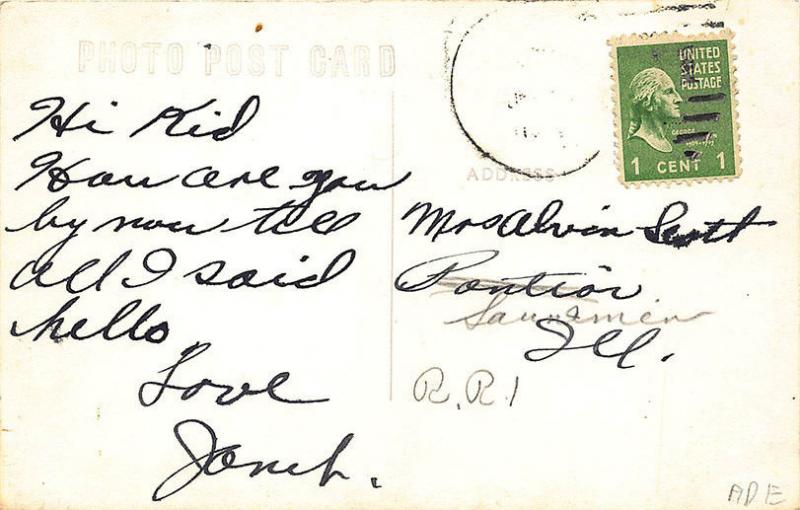 PHOTO POST CARD
Hi Kid
How are you
by now tell
all I said
hello
Love
ADDRESS
UNITED
STATES
POSTAGE
GEORGE
1 CENT 1
Mrs Alvin Scott
Pontiac
Saunemin
Ill.
R.R 1
ADE